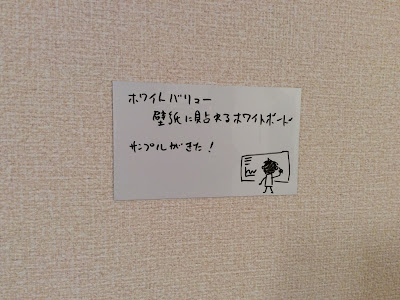 ホワイトバリュー
壁紙に貼れるホワイトボード
サンプルがきた！